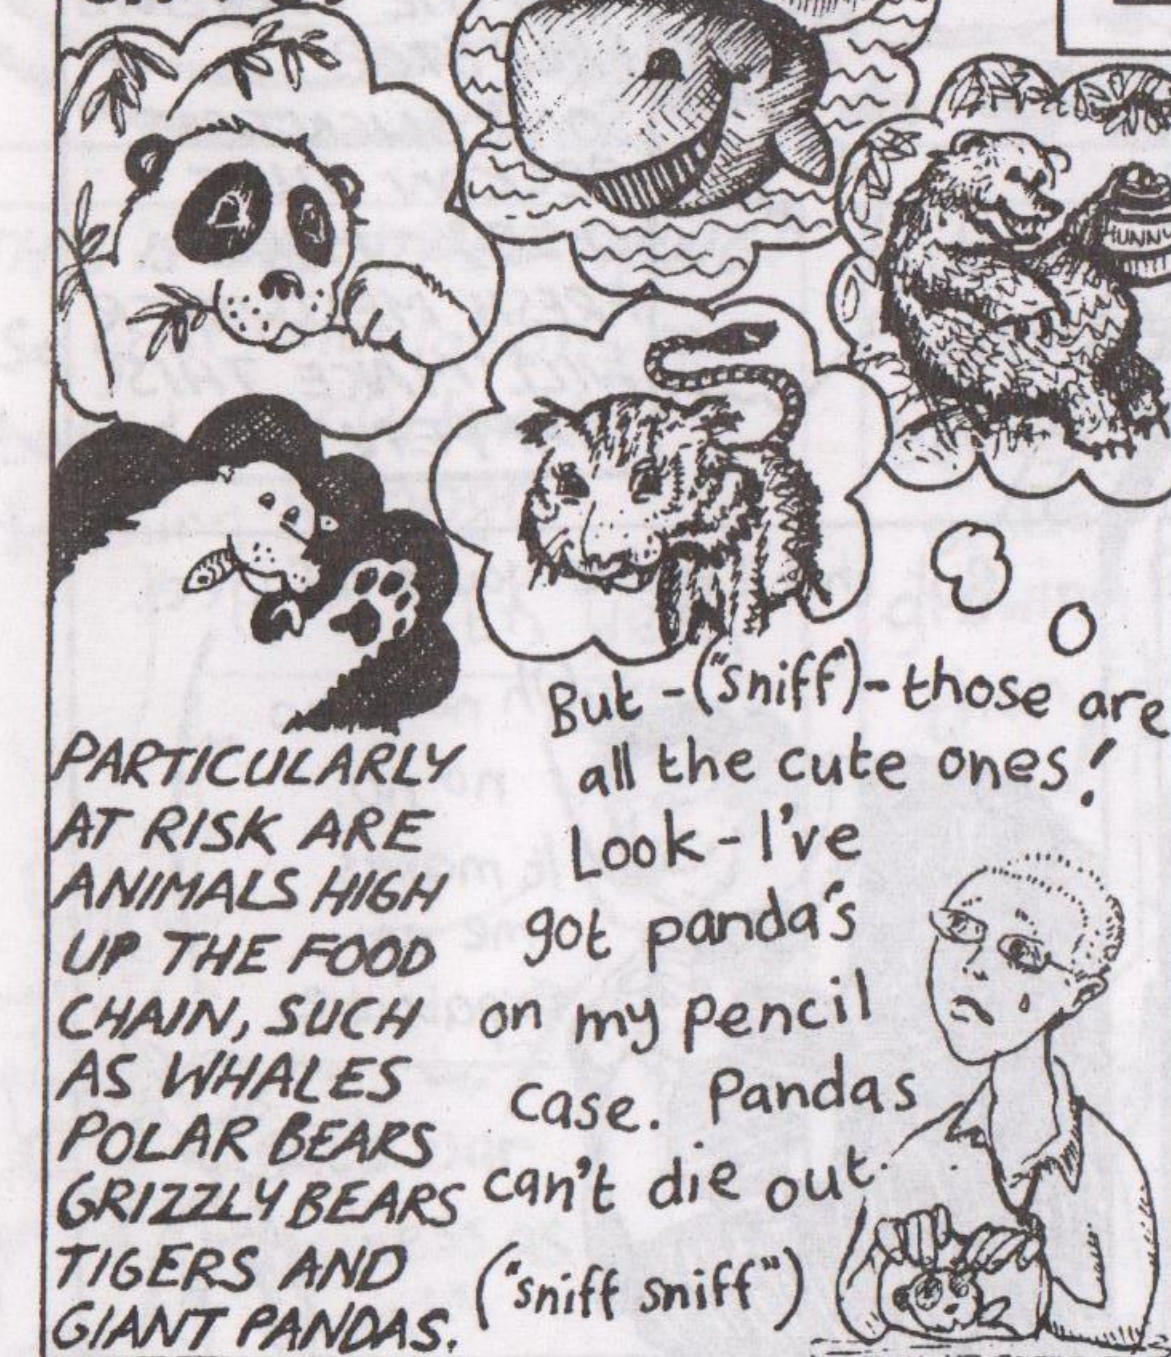 HUNNY
PARTICULARLY
AT RISK ARE
ANIMALS HIGH
UP THE FOOD
CHAIN, SUCH
AS WHALES
POLAR BEARS
GRIZZLY BEARS
TIGERS AND
GIANT PANDAS.
But - ("sniff") - those are
all the cute ones!
Look - I've
got panda's
on my pencil
case. Pandas
can't die out.
("sniff sniff")